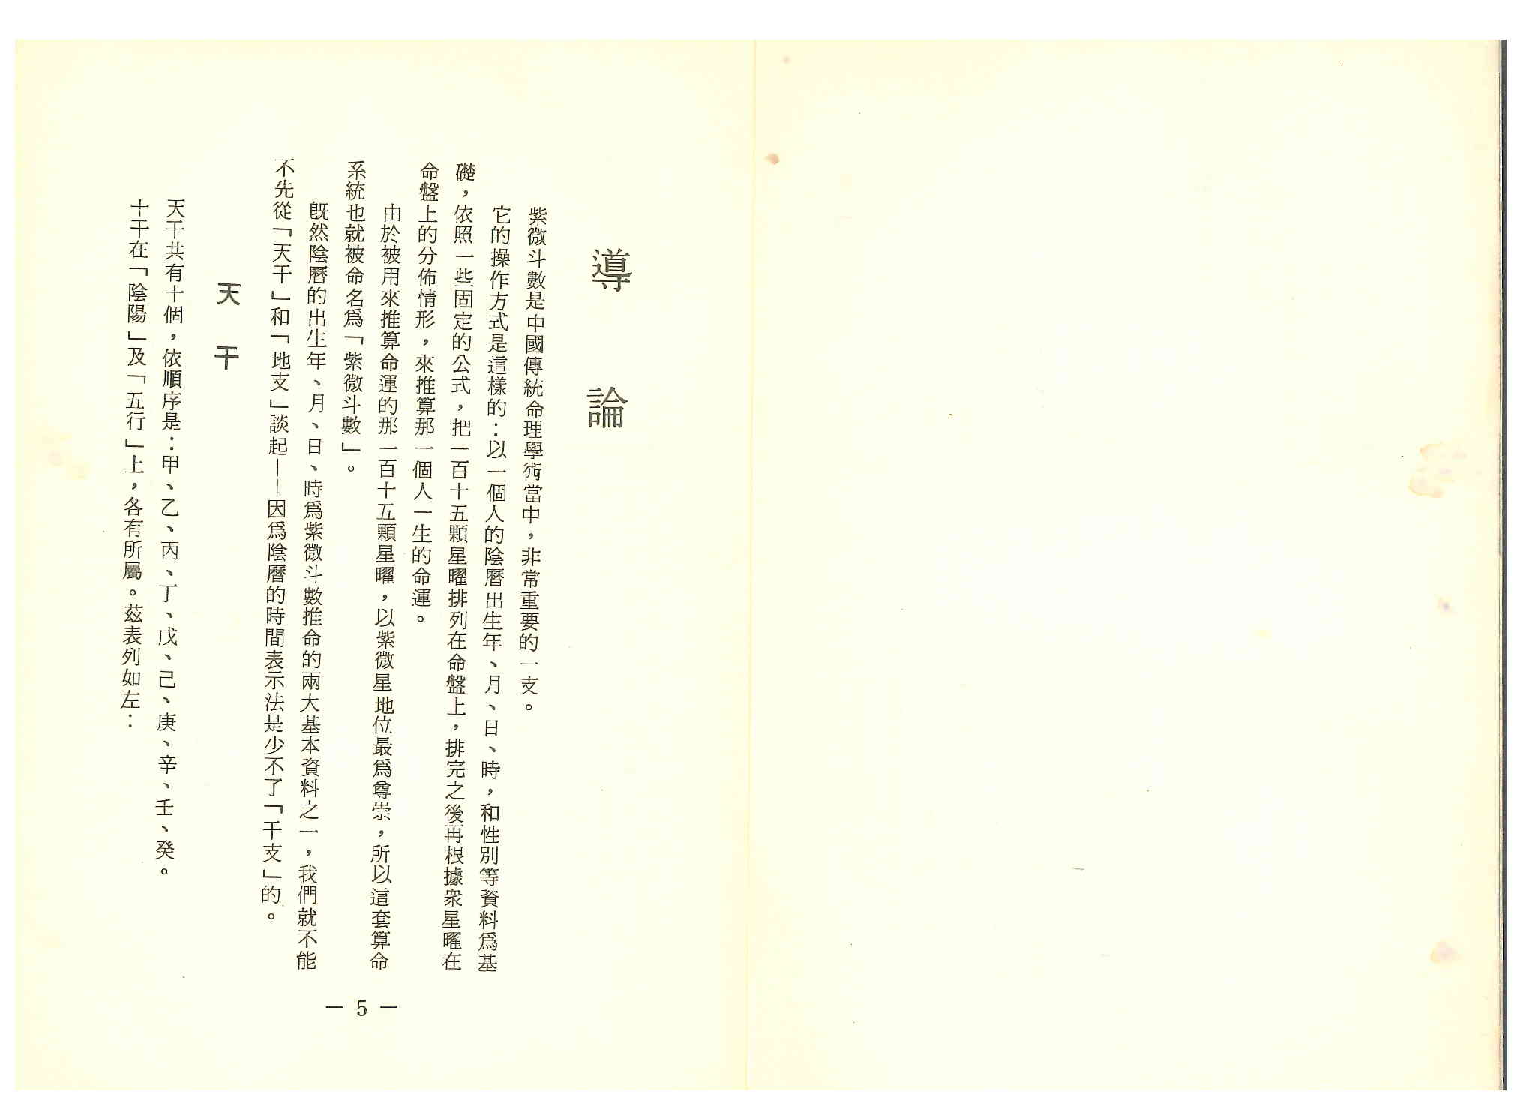 導論
紫微斗數是中國傳統命理學術當中，非常重要的一支。
它的操作方式是這樣的：以一個人的陰曆出生年、月、日、時，和性別等資料爲基
礎，依照一些固定的公式，把一百十五顆星曜排列在命盤上，排完之後再根據衆星曜在
命盤上的分佈情形，來推算那一個人一生的命運。
由於被用來推算命運的那一百十五顆星曜，以紫微星地位最爲尊崇，所以這套算命
系統也就被命名爲「紫微斗數」。
既然陰曆的出生年、月、日、時爲紫微斗數推命的兩大基本資料之一，我們就不能
不先從「天干」和「地支」談起——因爲陰曆的時間表示法是少不了「干支」的。
天干
天干共有十個，依順序是：甲、乙、丙、丁、戊、己、庚、辛、壬、癸。
十干在「陰陽」及「五行」上，各有所屬。茲表列如左：
— 5 —